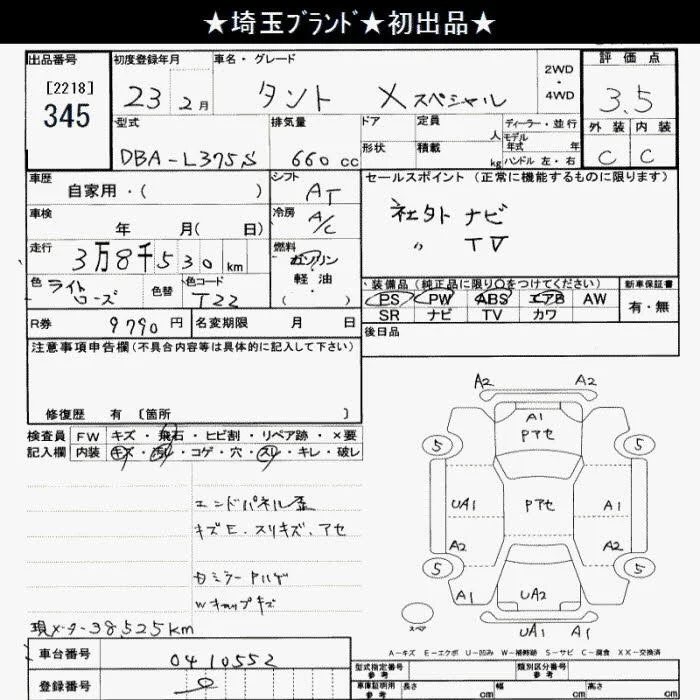 ★埼玉ﾌﾞﾗﾝﾄﾞ★初出品★
出品番号
[2218]
345
初度登録年月
23 2月
車名・グレード
タント Xスペシャル
2WD
・
4WD
評価点
3.5
外装 内装
C C
型式
DBA-L375S
排気量
660 cc
ドア
定員
人
ディーラー・並行
モデル
年式 年
形状
積載
kg
ハンドル 左・右
車歴
自家用・( )
シフト
AT
セールスポイント (正常に機能するものに限ります)
社外 ナビ
〃 TV
車検
年 月( 日)
冷房
A/C
走行
3万8千530 km
燃料
ガソリン
軽油
・( )
色
ライト
ローズ
色替
色コード
T22
装備品 (純正品に限り○をつけてください)
新車保証書
PS PW ABS エアB AW
有・無
SR ナビ TV カワ
R券
9790 円
名変期限 月 日
後日品
注意事項申告欄 (不具合内容等は具体的に記入して下さい)
修復歴 有 [箇所 ]
検査員 FW キズ・飛石・ヒビ割・リペア跡・×要
記入欄 内装 キズ・汚れ・コゲ・穴・スレ・キレ・破レ
エンドパネル歪
キズE.スリキズ、アセ
ミラー
Wキャップキズ
現メーター38525km
車台番号
0410552
登録番号
A2 A2
A1
Pアセ
5 5
UA1 Pアセ A1
A2 A2
5 5
A1 UA2 A1
スペア
UA1 A1
A-キズ E-エクボ U-凹み W-補修跡 S-サビ C-腐食 XX-交換済
型式指定番号
参考
類別区分番号
参考
車庫証明用
参考
長さ cm
幅 cm
高さ cm